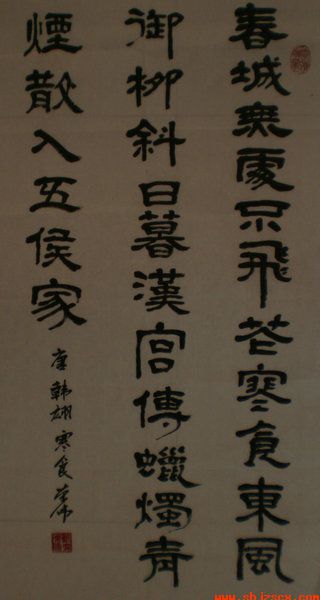 春城無處不飛花寒食東風
御柳斜日暮漢宮傳蠟燭青
煙散入五侯家
唐韓翃寒食
www.sbjzscx.